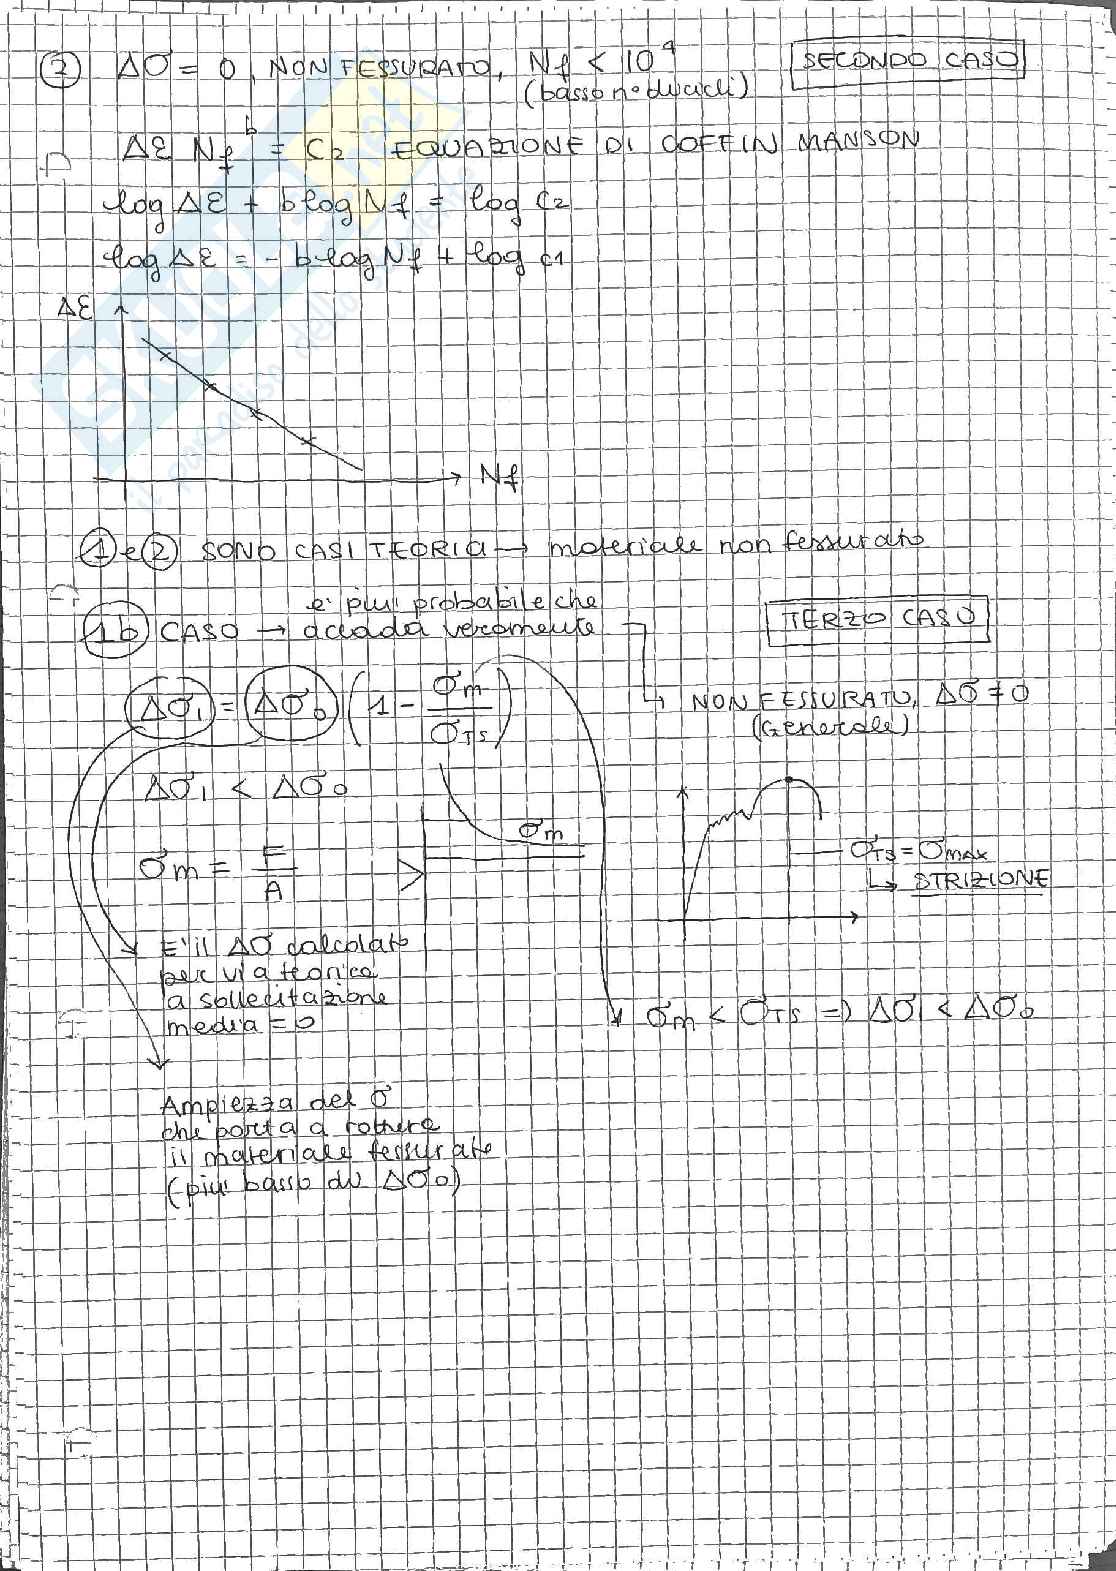 ② Δσ = 0, NON FESSURATO, Nf < 10⁴
SECONDO CASO
(basso n° di cicli)
Δε Nf^b = C2 EQUAZIONE DI COFFIN MANSON
log Δε + b log Nf = log C2
log Δε = - b log Nf + log C1
Δε
Nf
① e ② SONO CASI TEORIA → materiale non fessurato
è più probabile che
1b CASO → accada veramente
TERZO CASO
Δσ1 = Δσ0 (1 - σm/σTS)
NON FESSURATO, Δσ ≠ 0
(Generale)
Δσ1 < Δσ0
σm = F/A
σm
σTS = σMAX
↳ STRIZIONE
E' il Δσ calcolato
per via teorica
a sollecitazione
media = 0
σm < σTS => Δσ1 < Δσ0
Ampiezza del σ
che porta a rottura
il materiale fessurato
(più basso di Δσ0)